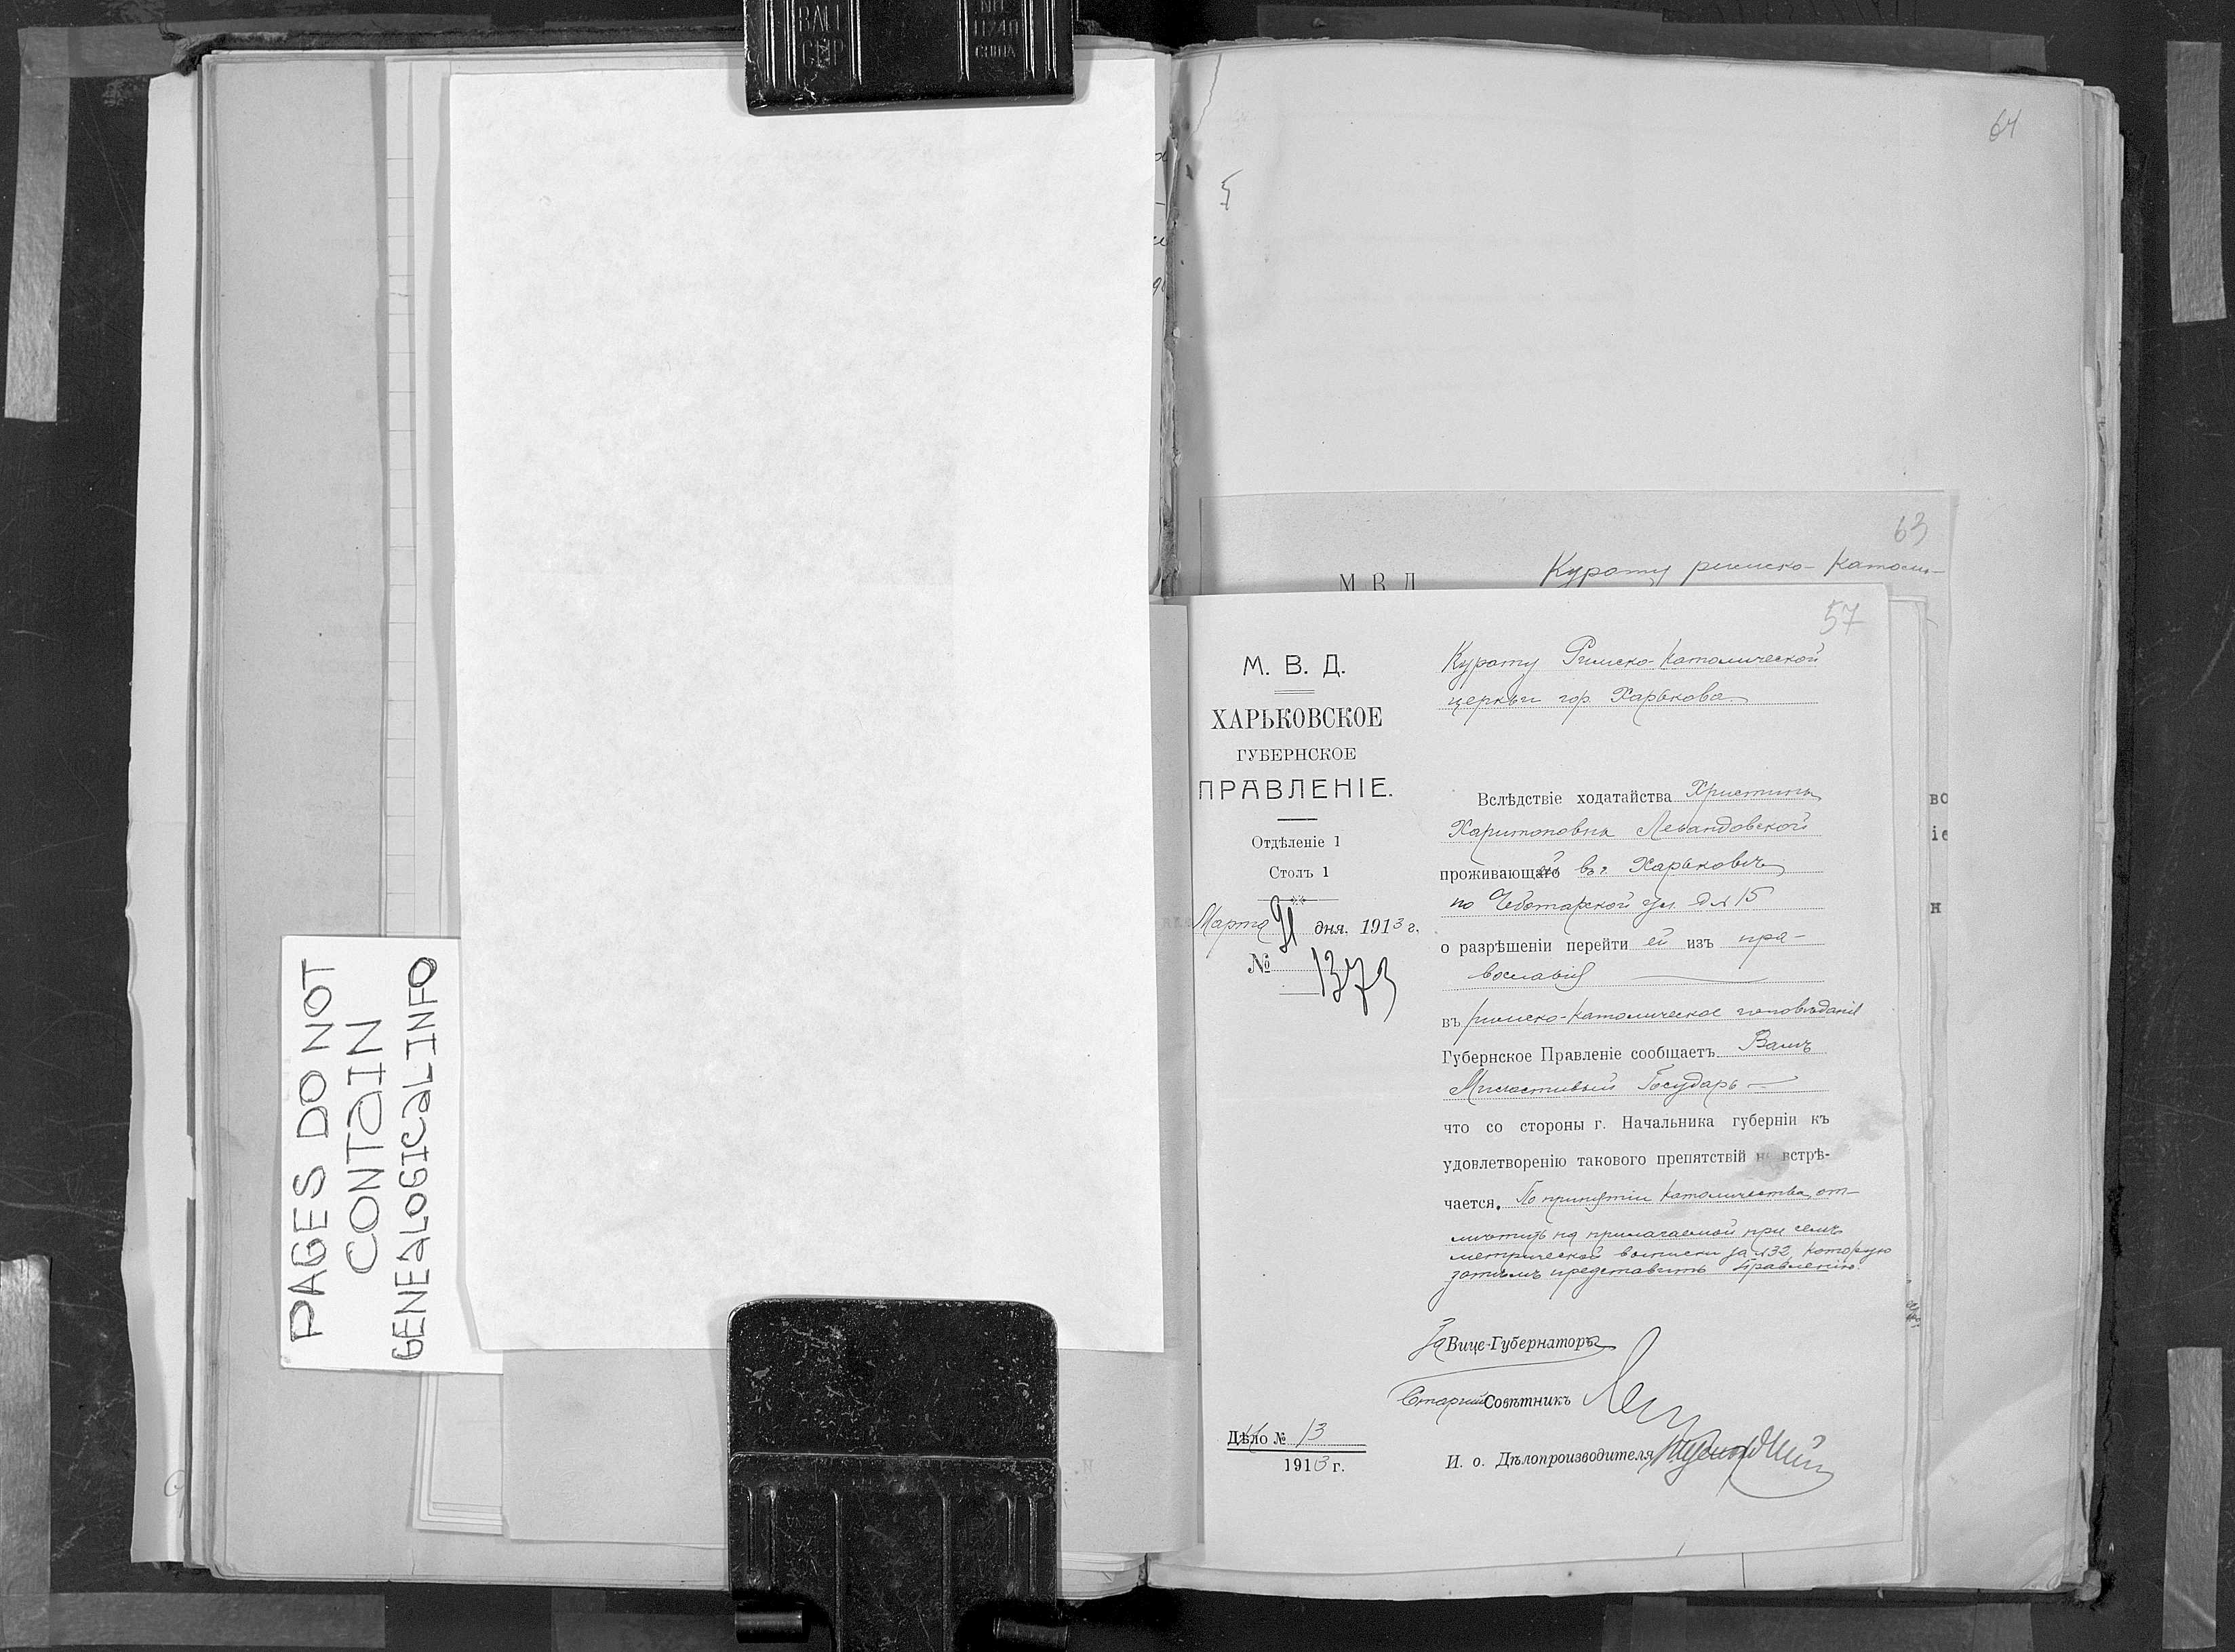 BALL
CLIP
NO.
1124П
CHINA
64
63
М В Д
Курату римско-католи-
57
М. В. Д.
ХАРЬКОВСКОЕ
ГУБЕРНСКОЕ
ПРАВЛЕНІЕ.
Отдѣленіе 1
Столъ 1
Марта 21 дня. 1913 г.
№ 1373
Курату Римско-Католической
церкви гор. Харькова
Вслѣдствіе ходатайства Христины
Харитоновны Левандовской
проживающей въ г. Харьковѣ
по Чеботарской ул. д № 15
о разрѣшеніи перейти ей изъ пра-
вославія
въ римско-католическое исповѣданіе
Губернское Правленіе сообщаетъ Вамъ
Милостивый Государь
что со стороны г. Начальника губерніи къ
удовлетворенію такового препятствій не встрѣ-
чается. По принятіи католичества, от-
мѣтить на прилагаемой при семъ
метрической выписки за № 32, которую
затѣмъ представить Правленію.
За Вице-Губернатора
Старшій Совѣтникъ
И. о. Дѣлопроизводителя
Дѣло № 13
1913 г.
во
іе
н
PAGES DO NOT
CONTAIN
GENEALOGICAL INFO